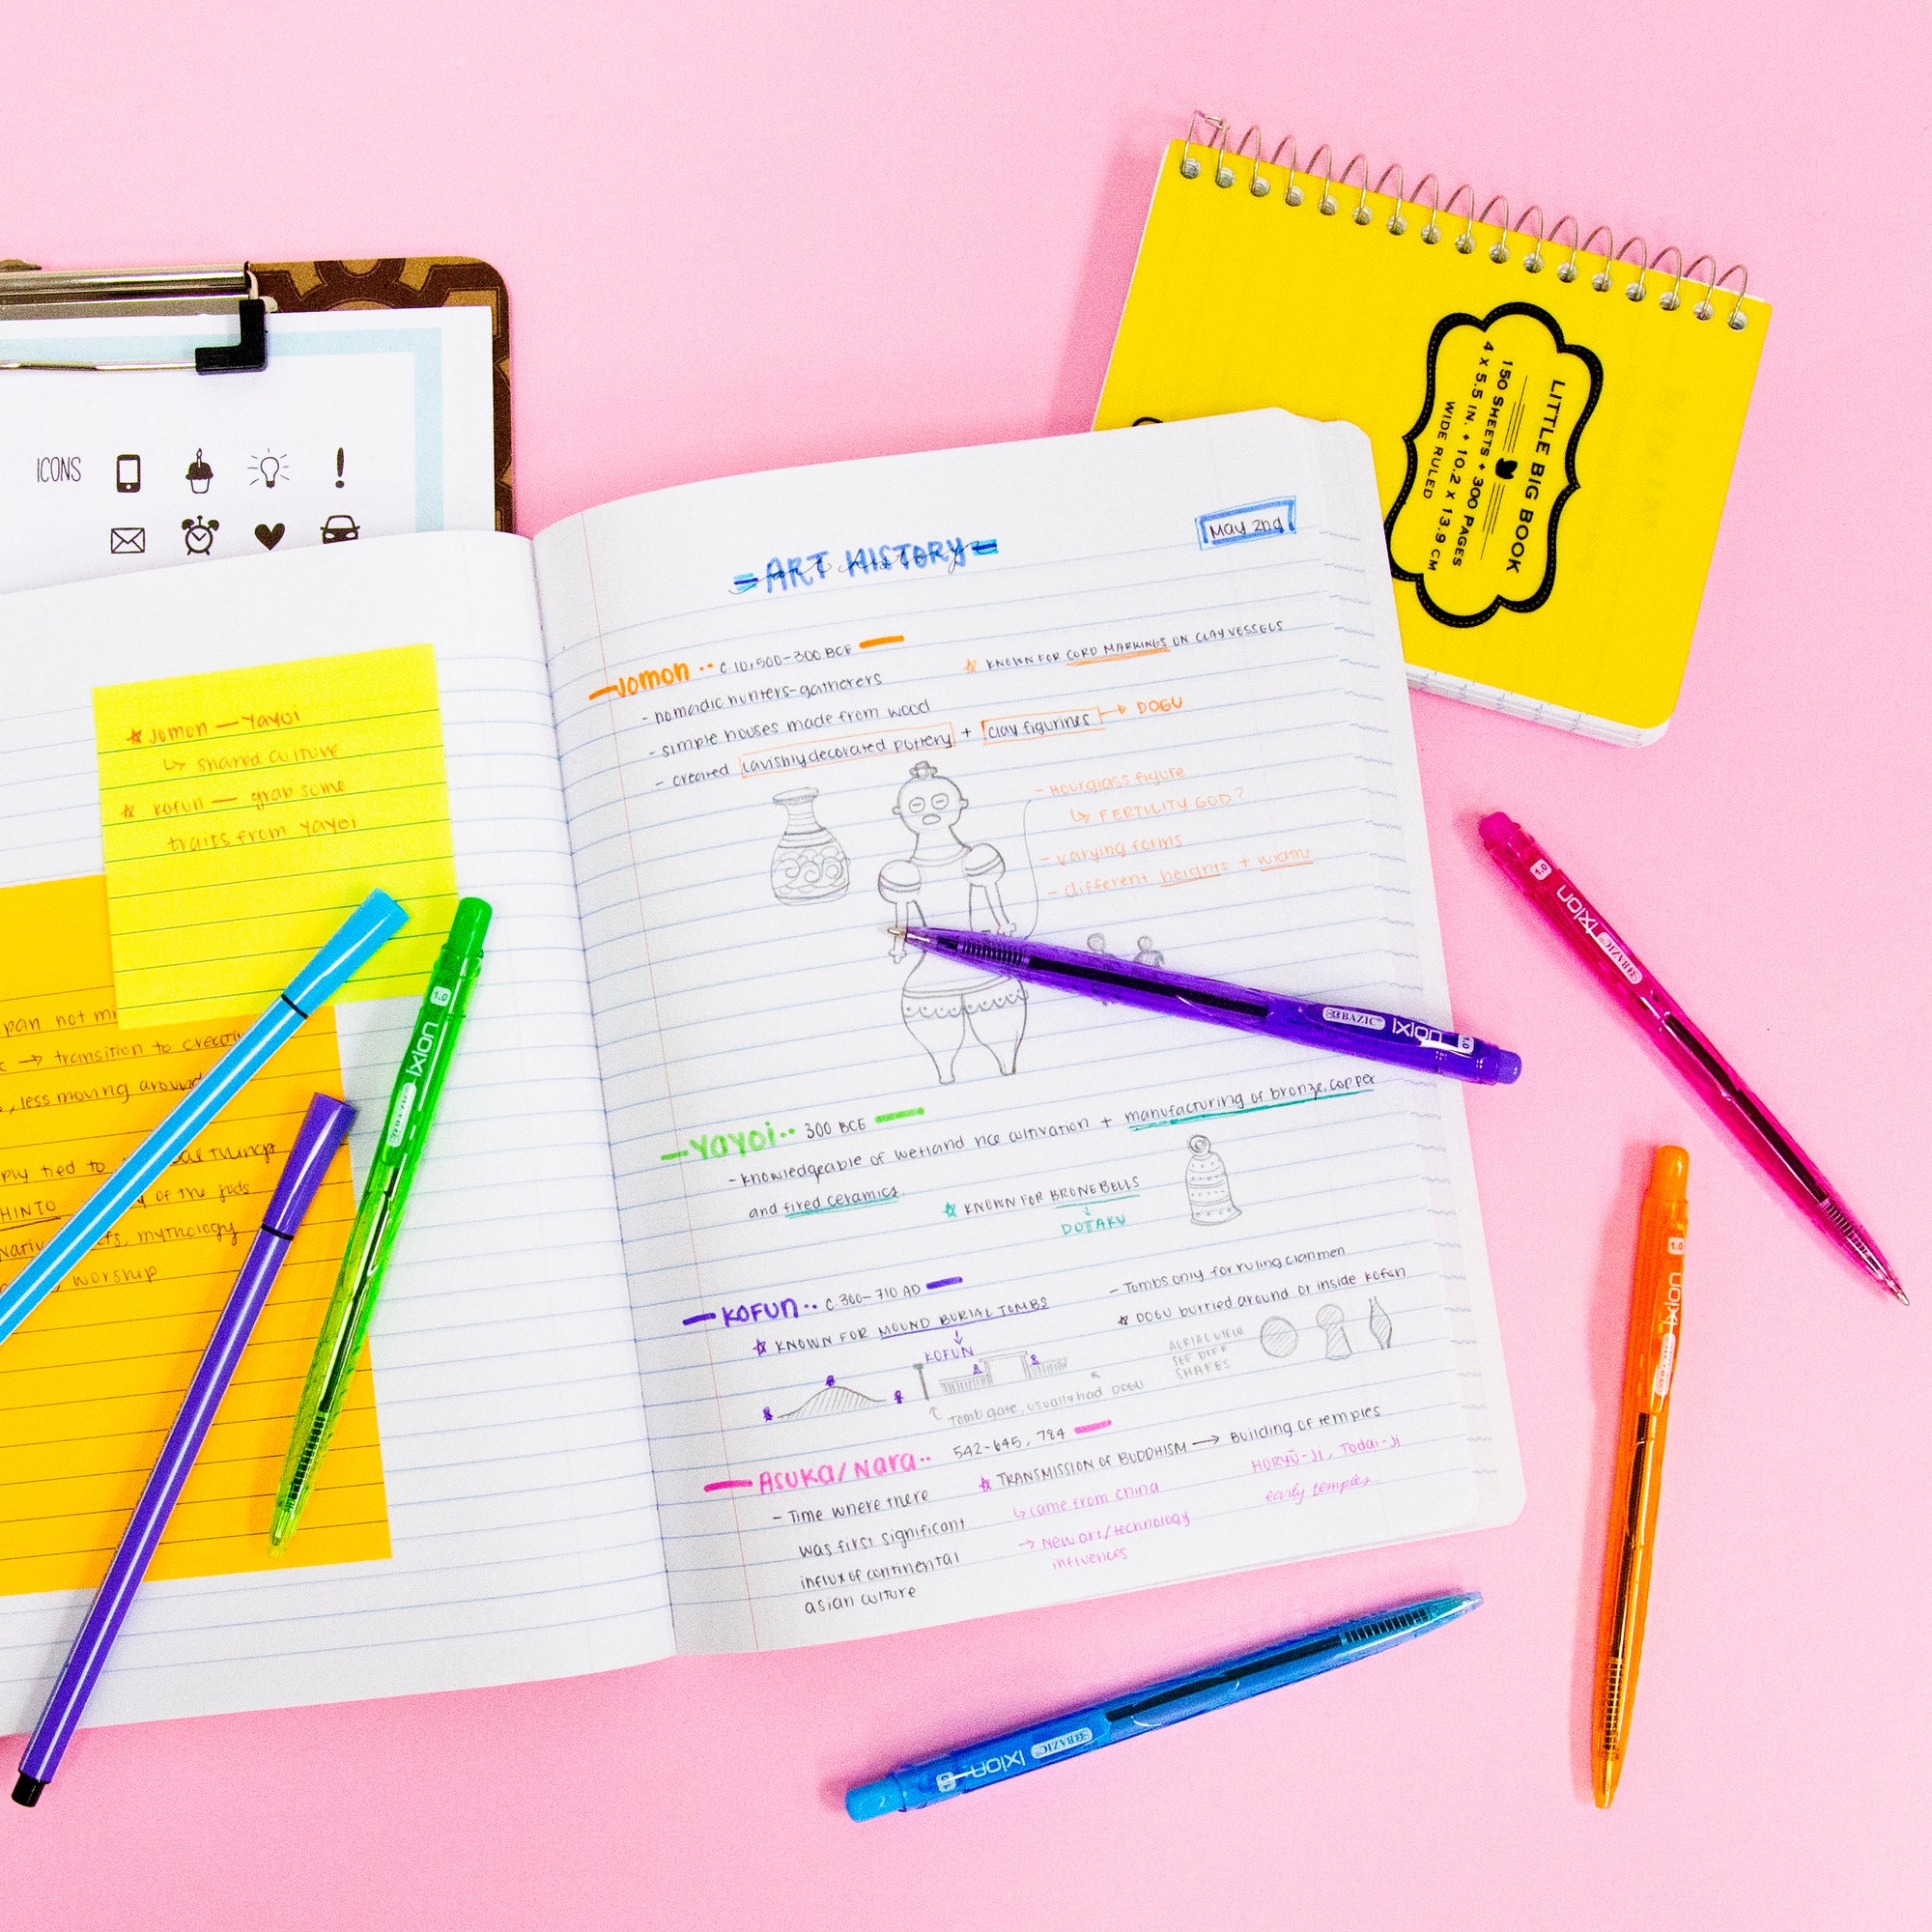 ICONS
LITTLE BIG BOOK
150 SHEETS + 300 PAGES
4 X 5.5 IN. + 10.2 X 13.9 CM
WIDE RULED
jomon — Yayoi
↳ shared culture
kofun — grab some
traits from Yayoi
pan not mi
→ transition to creatin
, less moving around
ply tied to
HINTO
of the
mythology
worship
= ART HISTORY =
art history
May 2nd
Jomon •• c. 10,500-300 BCE
☆ KNOWN FOR CORD MARKINGS ON CLAY VESSELS
- nomadic hunters-gatherers
- simple houses made from wood
- created lavishly decorated pottery + clay figurines → DOGU
- Hourglass figure
↳ FERTILITY GOD?
- varying forms
- different heights + width
Yayoi •• 300 BCE
- knowledgeable of wetland rice cultivation + manufacturing of bronze, copper
and fired ceramics
☆ KNOWN FOR BRONE BELLS
↓
DOTAKU
KOFUN •• c. 300-710 AD
☆ KNOWN FOR MOUND BURIAL TOMBS
↓
KOFUN
tomb gate, usually had DOGU
- Tombs only for ruling clanmen
☆ DOGU burried around or inside kofun
AERIAL VIEW
SEE DIFF
SHAPES
Asuka/Nara •• 542-645, 784
- Time where there
was first significant
influx of continental
asian culture
☆ TRANSMISSION OF BUDDHISM → Building of temples
↳ came from china
→ New art/technology
influences
HORYŪ-JI, Todai-Ji
early temples
BAZIC ixion 1.0
BAZIC ixion 1.0
BAZIC ixion 1.0
BAZIC ixion 1.0
BAZIC ixion